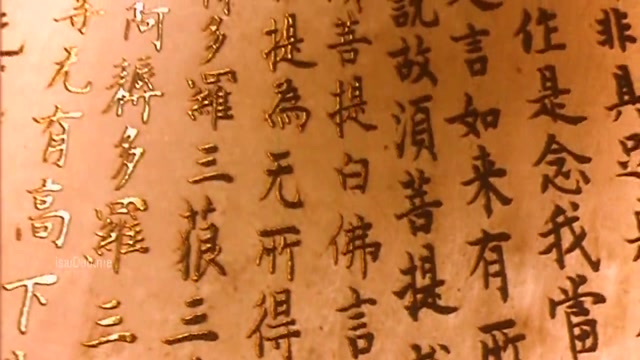 非具足
作是念我當
言如来有所
說故須菩提
菩提白佛言
提為无所得
多羅三藐三
阿耨多羅三
等无有高下
isaiDub.me